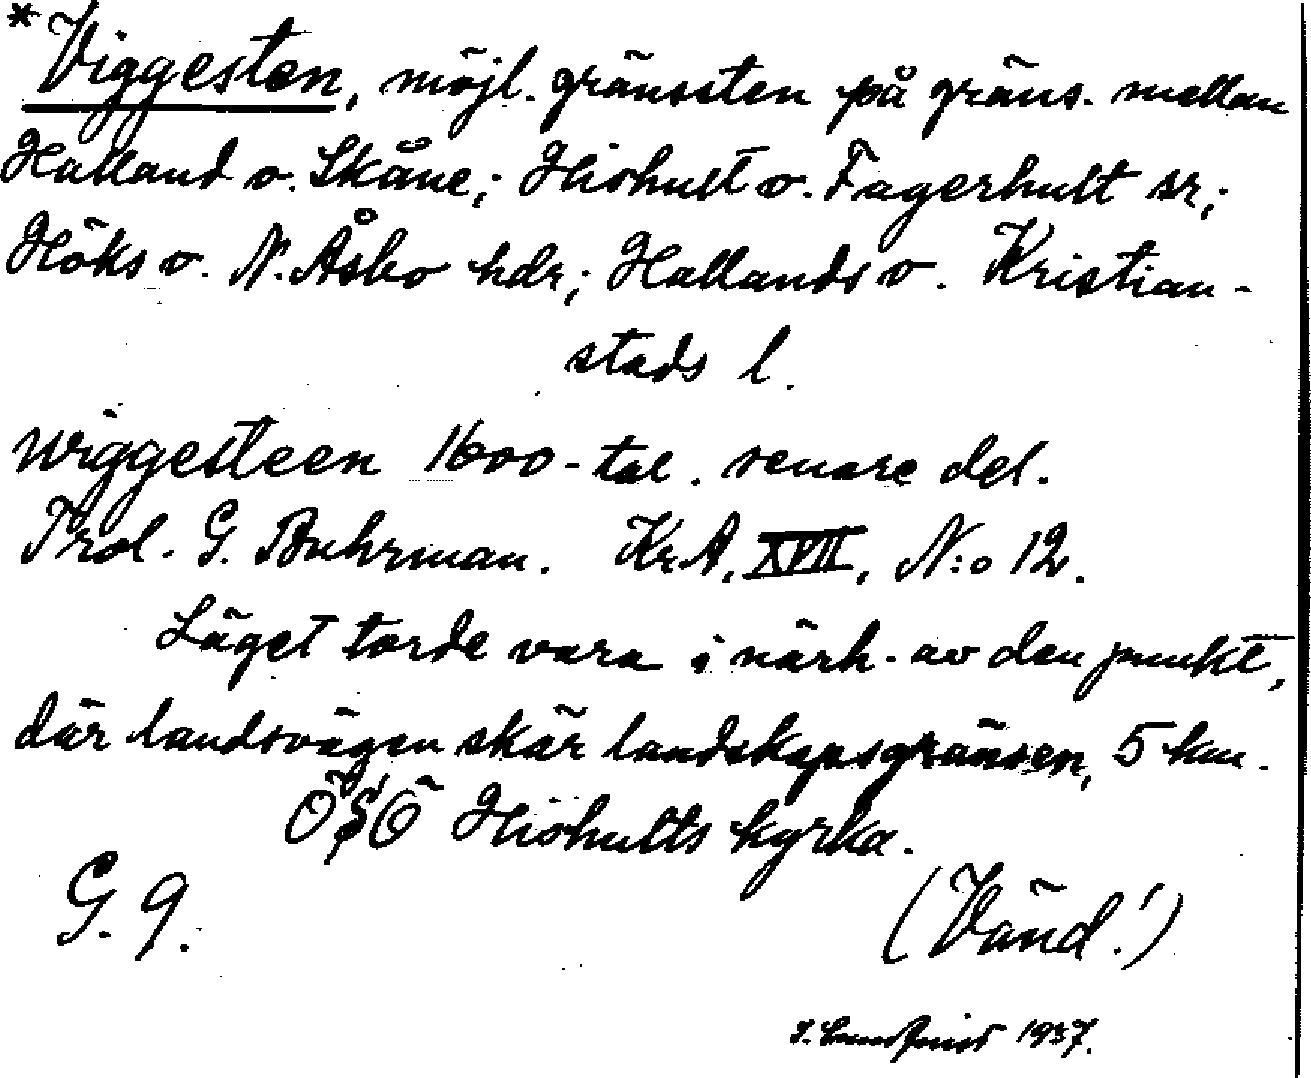 *Viggesten, möjl. gränssten på gräns. mellan
Halland o. Skåne; Hishult o. Fagerhult sr;
Höks o. N. Åsbo hdr; Hallands o. Kristian-
stads l.
wiggesteen 1600-tal. senare del.
Prol. G. Buhrman. KrA, XVII, N:o 12.
Läget torde vara i närh. av den punkt,
där landsvägen skär landskapsgränsen, 5 km.
ÖSÖ Hishults kyrka.
G. 9.
(Vänd!)
1937.